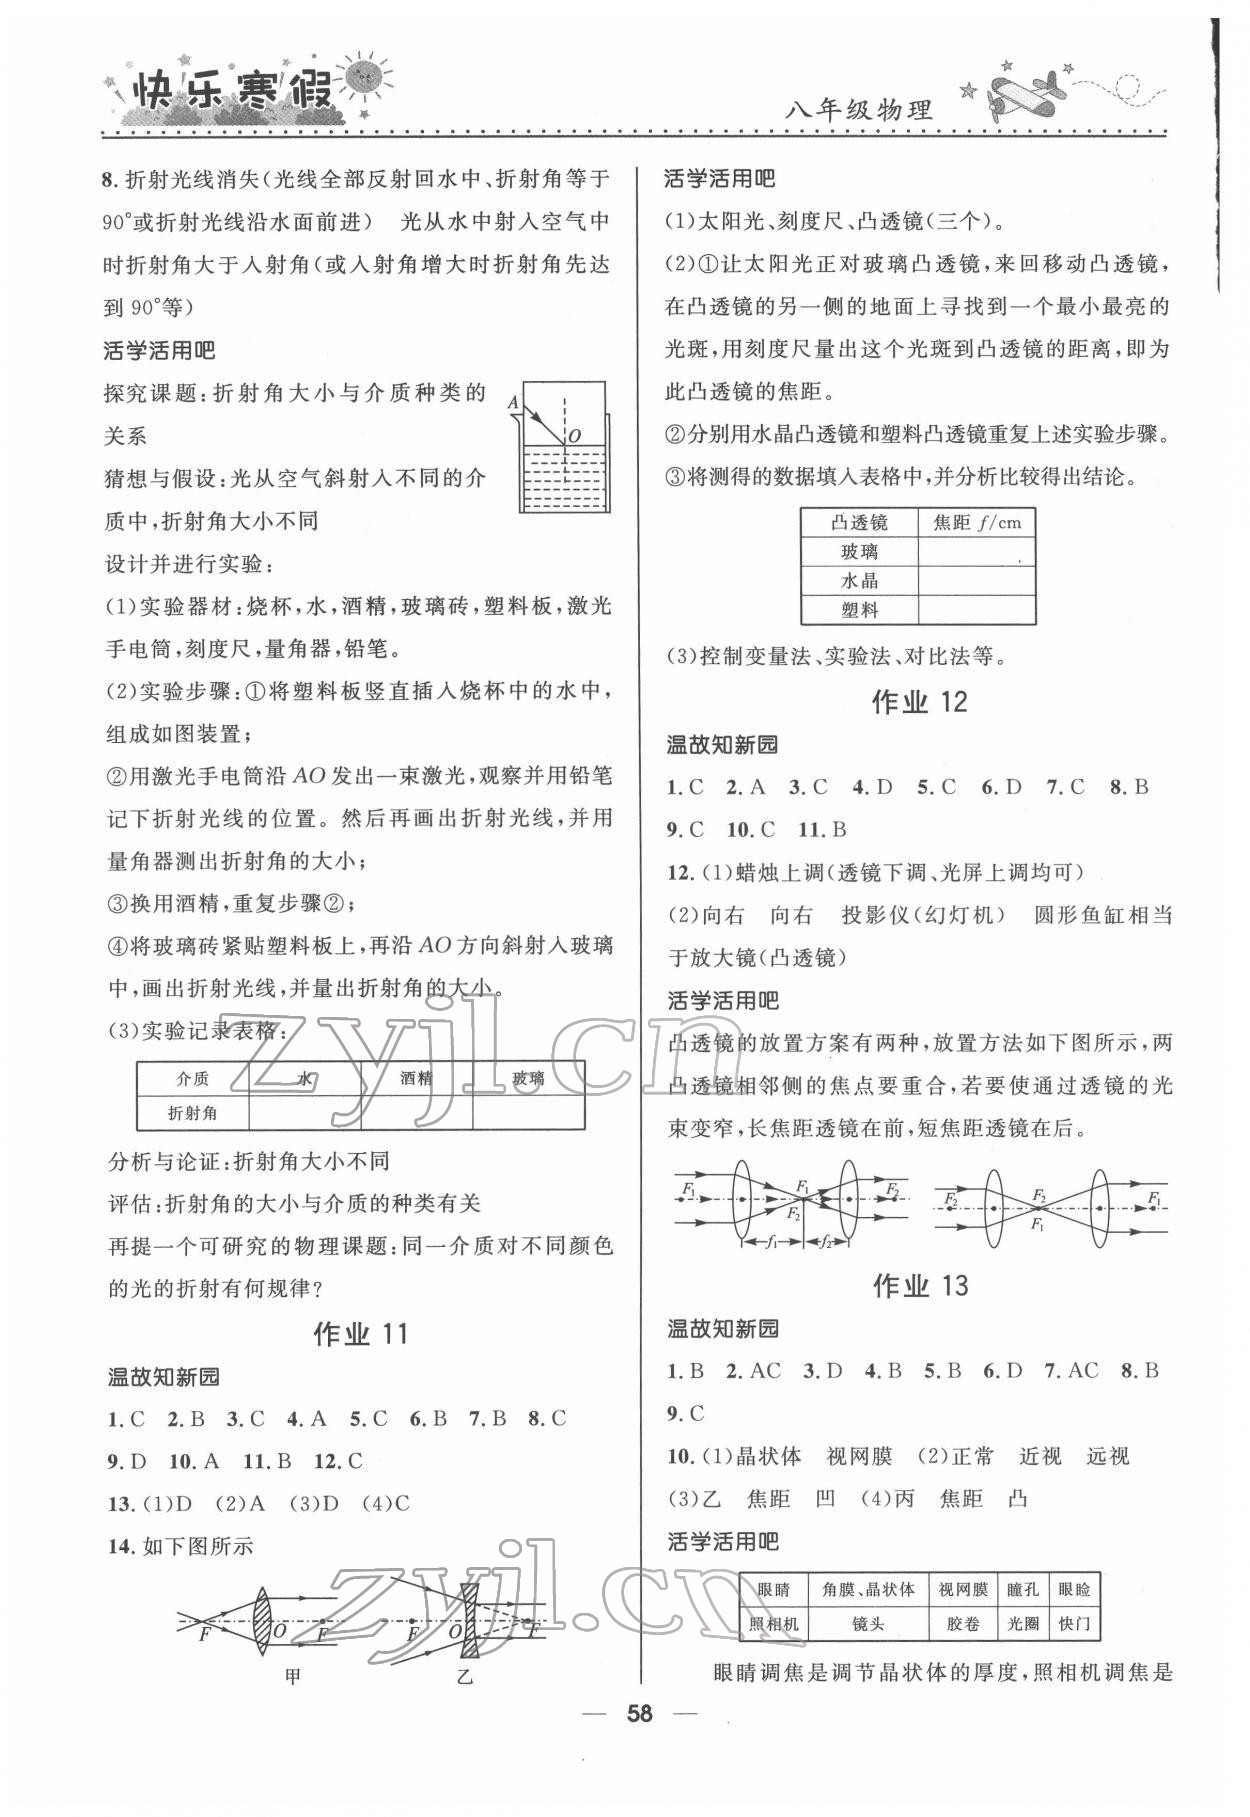 快乐寒假
八年级物理
8. 折射光线消失(光线全部反射回水中、折射角等于
90°或折射光线沿水面前进) 光从水中射入空气中
时折射角大于入射角(或入射角增大时折射角先达
到 90°等)
活学活用吧
探究课题:折射角大小与介质种类的
关系
猜想与假设:光从空气斜射入不同的介
质中,折射角大小不同
A
O
设计并进行实验:
(1)实验器材:烧杯,水,酒精,玻璃砖,塑料板,激光
手电筒,刻度尺,量角器,铅笔。
(2)实验步骤:①将塑料板竖直插入烧杯中的水中,
组成如图装置;
②用激光手电筒沿 AO 发出一束激光,观察并用铅笔
记下折射光线的位置。然后再画出折射光线,并用
量角器测出折射角的大小;
③换用酒精,重复步骤②;
④将玻璃砖紧贴塑料板上,再沿 AO 方向斜射入玻璃
中,画出折射光线,并量出折射角的大小。
(3)实验记录表格:
介质 水 酒精 玻璃
折射角
分析与论证:折射角大小不同
评估:折射角的大小与介质的种类有关
再提一个可研究的物理课题:同一介质对不同颜色
的光的折射有何规律?
作业 11
温故知新园
1. C 2. B 3. C 4. A 5. C 6. B 7. B 8. C
9. D 10. A 11. B 12. C
13. (1)D (2)A (3)D (4)C
14. 如下图所示
F O F F O F
甲 乙
活学活用吧
(1)太阳光、刻度尺、凸透镜(三个)。
(2)①让太阳光正对玻璃凸透镜,来回移动凸透镜,
在凸透镜的另一侧的地面上寻找到一个最小最亮的
光斑,用刻度尺量出这个光斑到凸透镜的距离,即为
此凸透镜的焦距。
②分别用水晶凸透镜和塑料凸透镜重复上述实验步骤。
③将测得的数据填入表格中,并分析比较得出结论。
凸透镜 焦距 f/cm
玻璃
水晶
塑料
(3)控制变量法、实验法、对比法等。
作业 12
温故知新园
1. C 2. A 3. C 4. D 5. C 6. D 7. C 8. B
9. C 10. C 11. B
12. (1)蜡烛上调(透镜下调、光屏上调均可)
(2)向右 向右 投影仪(幻灯机) 圆形鱼缸相当
于放大镜(凸透镜)
活学活用吧
凸透镜的放置方案有两种,放置方法如下图所示,两
凸透镜相邻侧的焦点要重合,若要使通过透镜的光
束变窄,长焦距透镜在前,短焦距透镜在后。
F₁ F₁ F₂ F₂ F₂ F₁
F₂ F₁
f₁ f₂
作业 13
温故知新园
1. B 2. AC 3. D 4. B 5. B 6. D 7. AC 8. B
9. C
10. (1)晶状体 视网膜 (2)正常 近视 远视
(3)乙 焦距 凹 (4)丙 焦距 凸
活学活用吧
眼睛 角膜、晶状体 视网膜 瞳孔 眼睑
照相机 镜头 胶卷 光圈 快门
眼睛调焦是调节晶状体的厚度,照相机调焦是
58
zyjl.cn
zyjl.cn